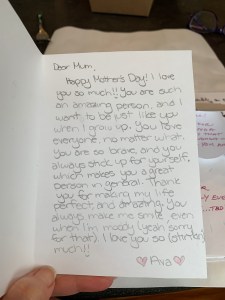 Dear Mum,
Happy Mother's Day! I love
you so much!! You are such
an amazing person, and I
want to be just like you
when I grow up. You love
everyone, no matter what.
You are so brave, and you
always stick up for yourself,
which makes you a great
person in general. Thank
you for making my life
perfect, and amazing. You
always make me smile, even
when I'm moody (yeah sorry
for that). I love you so
much!!
Ava